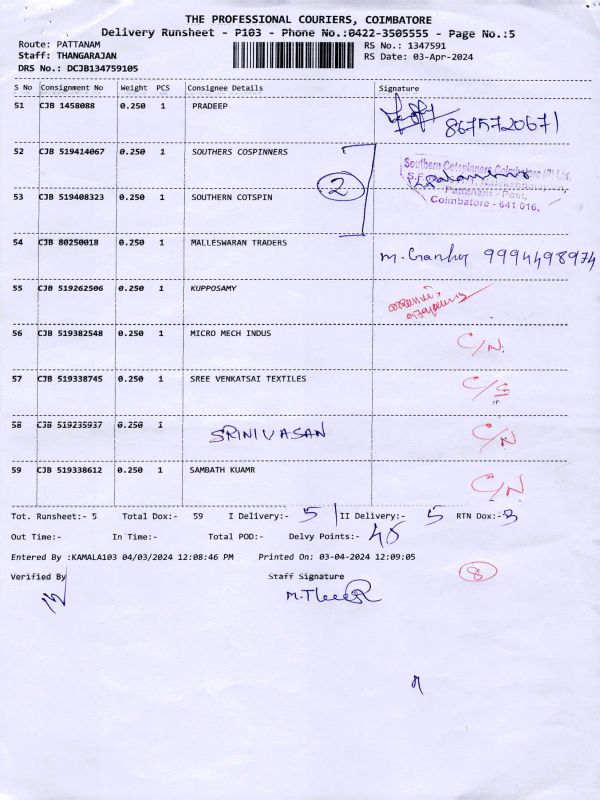 THE PROFESSIONAL COURIERS, COIMBATORE
Delivery Runsheet - P103 - Phone No.:0422-3505555 - Page No.:5
Route: PATTANAM RS No.: 1347591
Staff: THANGARAJAN RS Date: 03-Apr-2024
DRS No.: DCJB134759105
S No Consignment No Weight PCS Consignee Details Signature
51 CJB 1458088 0.250 1 PRADEEP 8675720671
52 CJB 519414067 0.250 1 SOUTHERS COSPINNERS
Southern Cotspinners Coimbatore (P) Ltd.
Pattanam - Post,
Coimbatore - 641 016.
2
53 CJB 519408323 0.250 1 SOUTHERN COTSPIN
54 CJB 80250018 0.250 1 MALLESWARAN TRADERS 9994498974
55 CJB 519262506 0.250 1 KUPPOSAMY
56 CJB 519382548 0.250 1 MICRO MECH INDUS C/N.
57 CJB 519338745 0.250 1 SREE VENKATSAI TEXTILES C/S
58 CJB 519235937 0.250 1 SRINIVASAN C/N
59 CJB 519338612 0.250 1 SAMBATH KUAMR C/N.
Tot. Runsheet:- 5 Total Dox:- 59 I Delivery:- 5 II Delivery:- 5 RTN Dox:- 8
Out Time:- In Time:- Total POD:- Delvy Points:-
Entered By :KAMALA103 04/03/2024 12:08:46 PM Printed On: 03-04-2024 12:09:05
Verified By Staff Signature 8